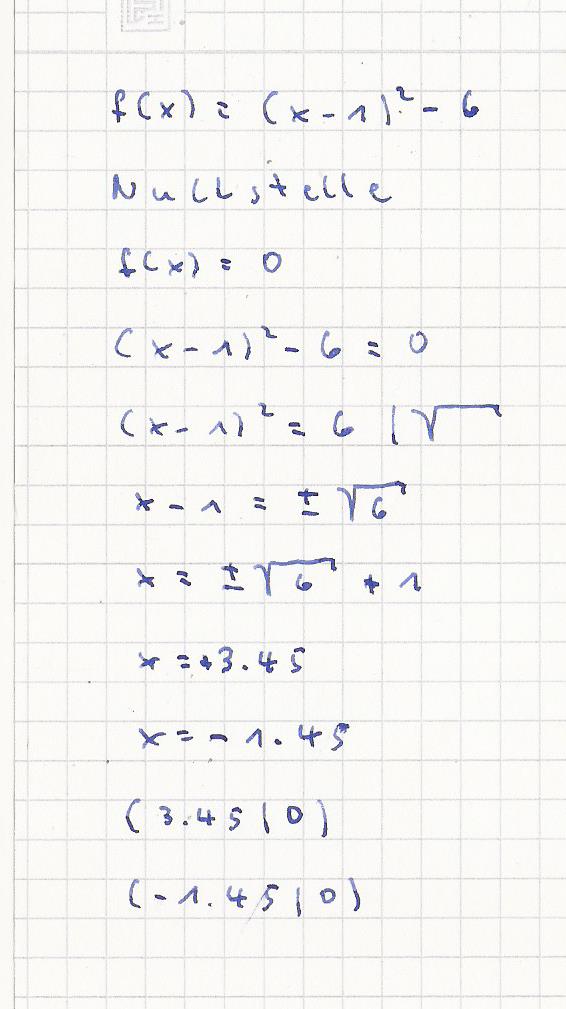 f(x) = (x-1)² - 6
Nullstelle
f(x) = 0
(x-1)² - 6 = 0
(x-1)² = 6 | √
x - 1 = ± √6
x = ± √6 + 1
x = +3.45
x = - 1.45
(3.45 | 0)
(-1.45 | 0)